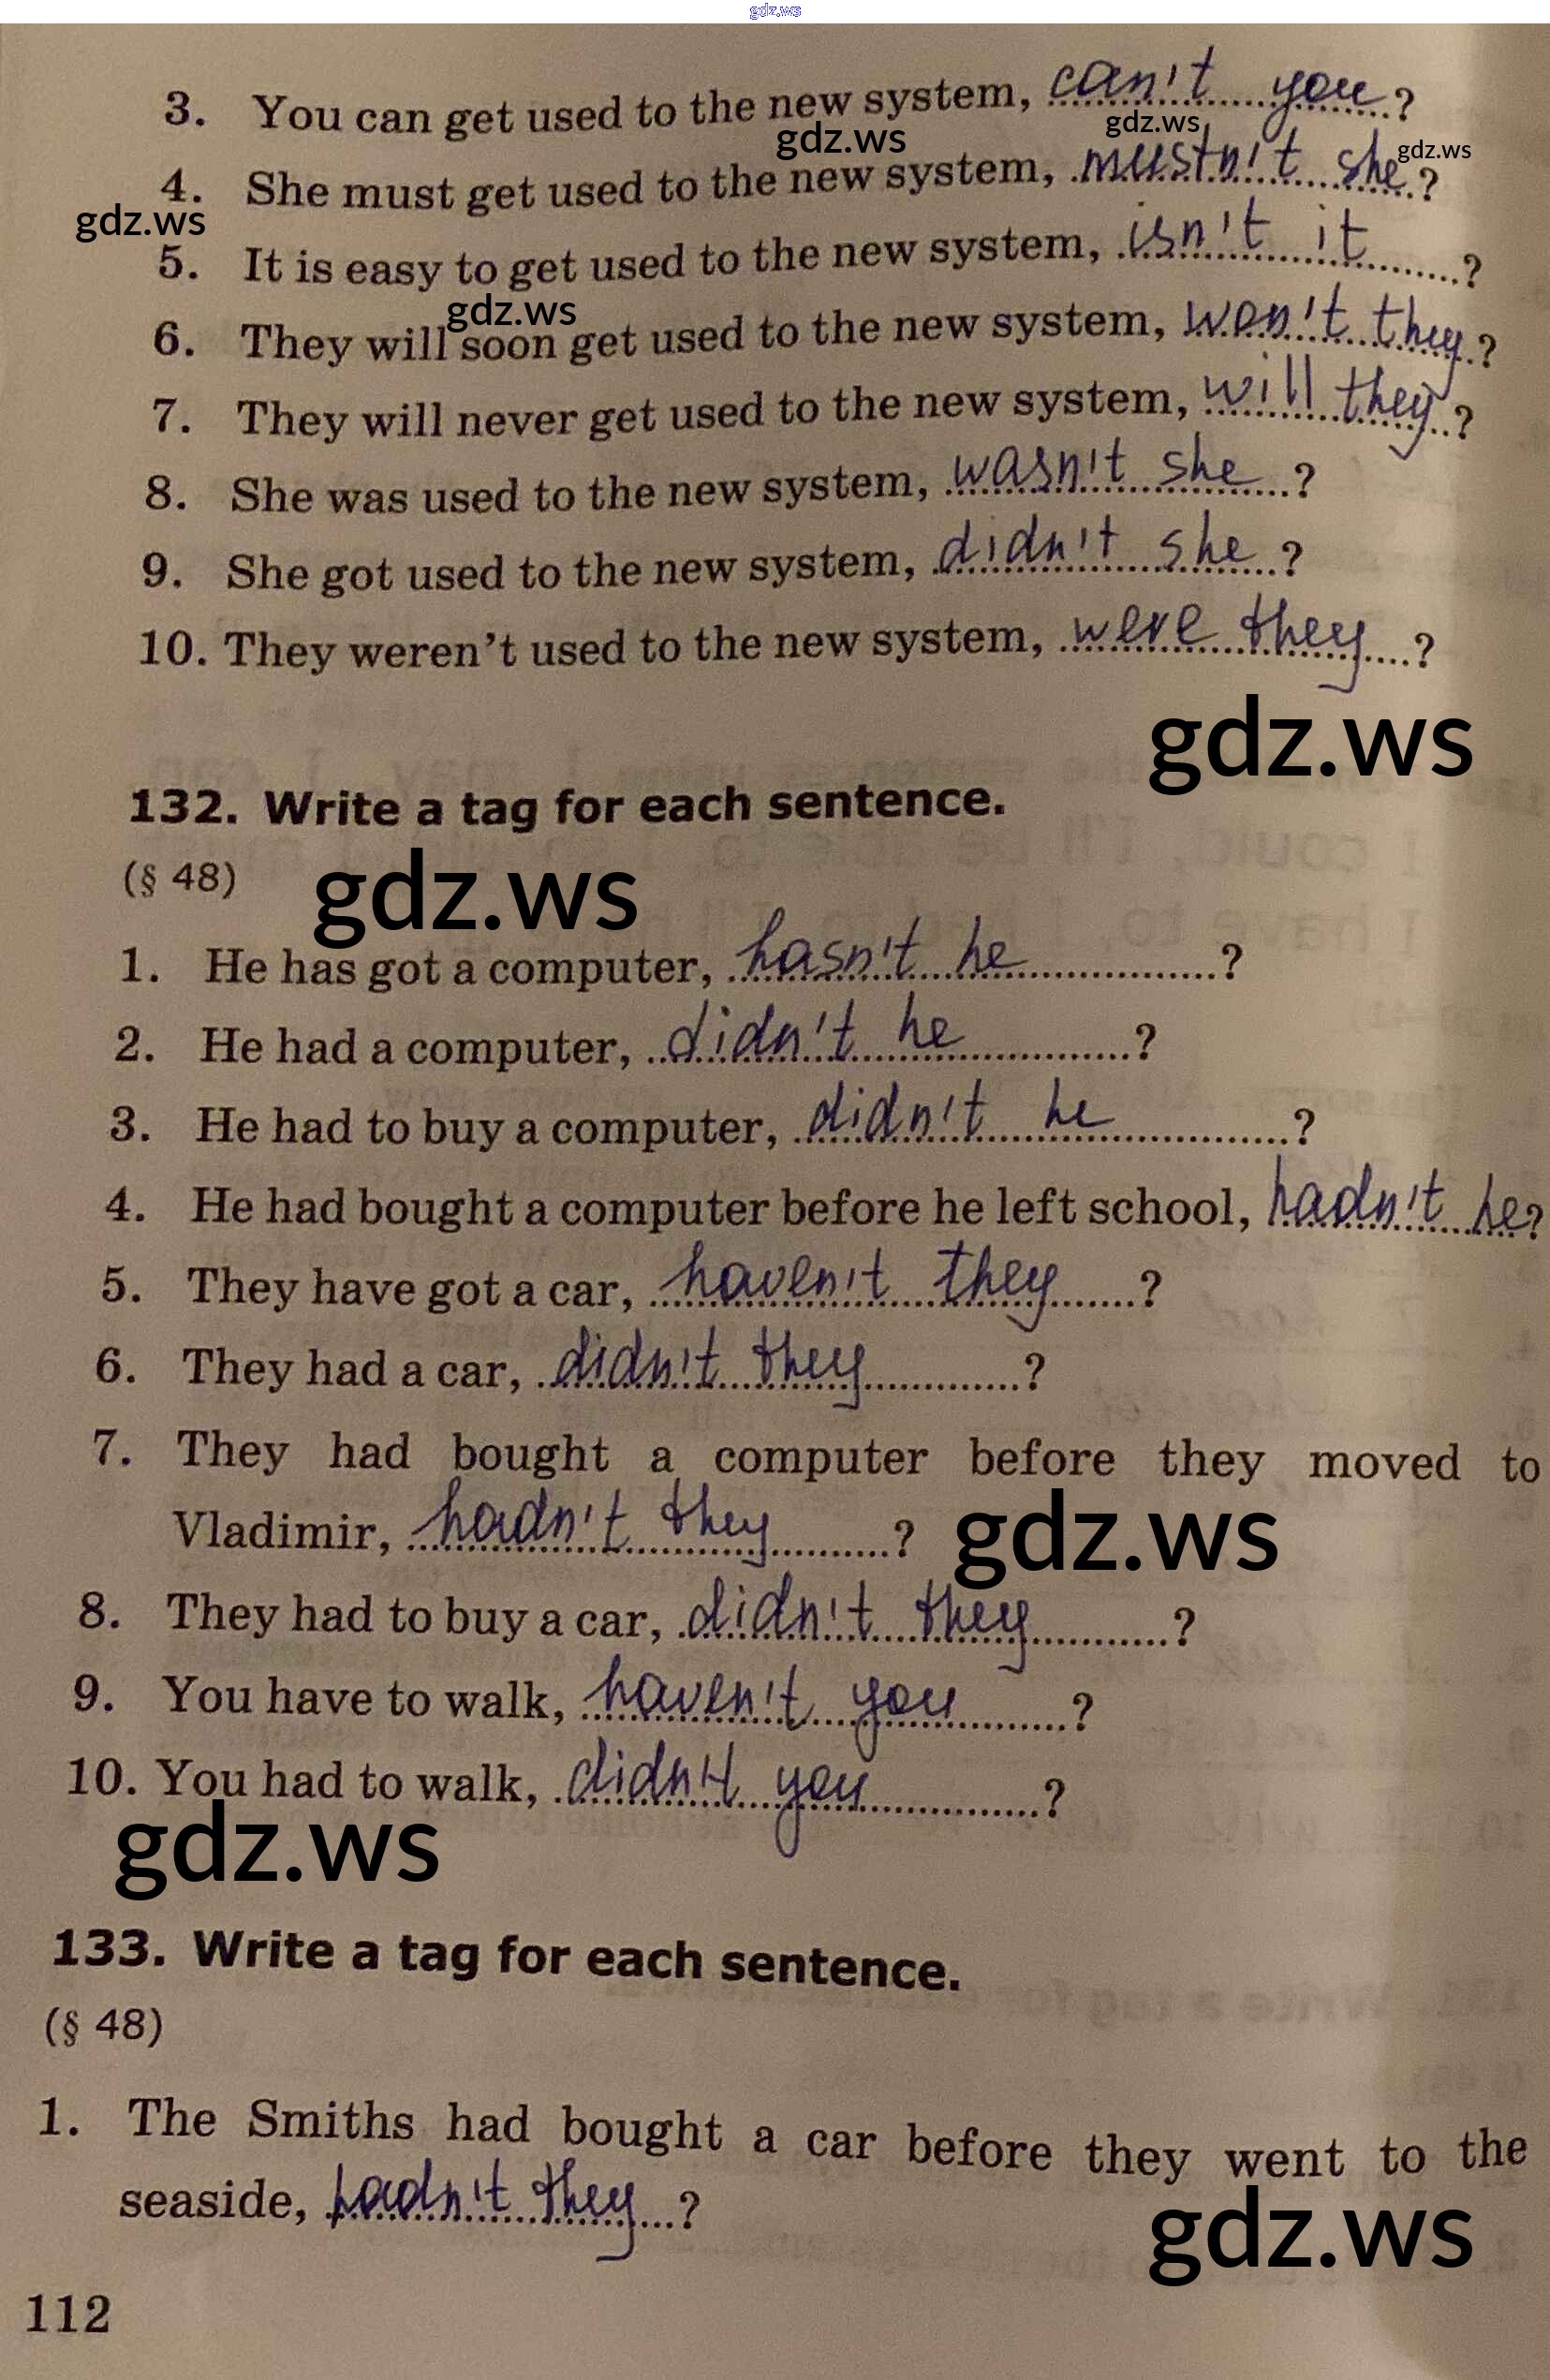 gdz.ws
3. You can get used to the new system, can't you ?
gdz.ws gdz.ws
4. She must get used to the new system, mustn't she ?
gdz.ws
gdz.ws
5. It is easy to get used to the new system, isn't it ?
gdz.ws
6. They will soon get used to the new system, won't they ?
7. They will never get used to the new system, will they ?
8. She was used to the new system, wasn't she ?
9. She got used to the new system, didn't she ?
10. They weren't used to the new system, were they ?
gdz.ws
132. Write a tag for each sentence.
(§ 48)
gdz.ws
1. He has got a computer, hasn't he ?
2. He had a computer, didn't he ?
3. He had to buy a computer, didn't he ?
4. He had bought a computer before he left school, hadn't he ?
5. They have got a car, haven't they ?
6. They had a car, didn't they ?
7. They had bought a computer before they moved to
Vladimir, hadn't they ?
gdz.ws
8. They had to buy a car, didn't they ?
9. You have to walk, haven't you ?
10. You had to walk, didn't you ?
gdz.ws
133. Write a tag for each sentence.
(§ 48)
1. The Smiths had bought a car before they went to the
seaside, hadn't they ?
gdz.ws
112